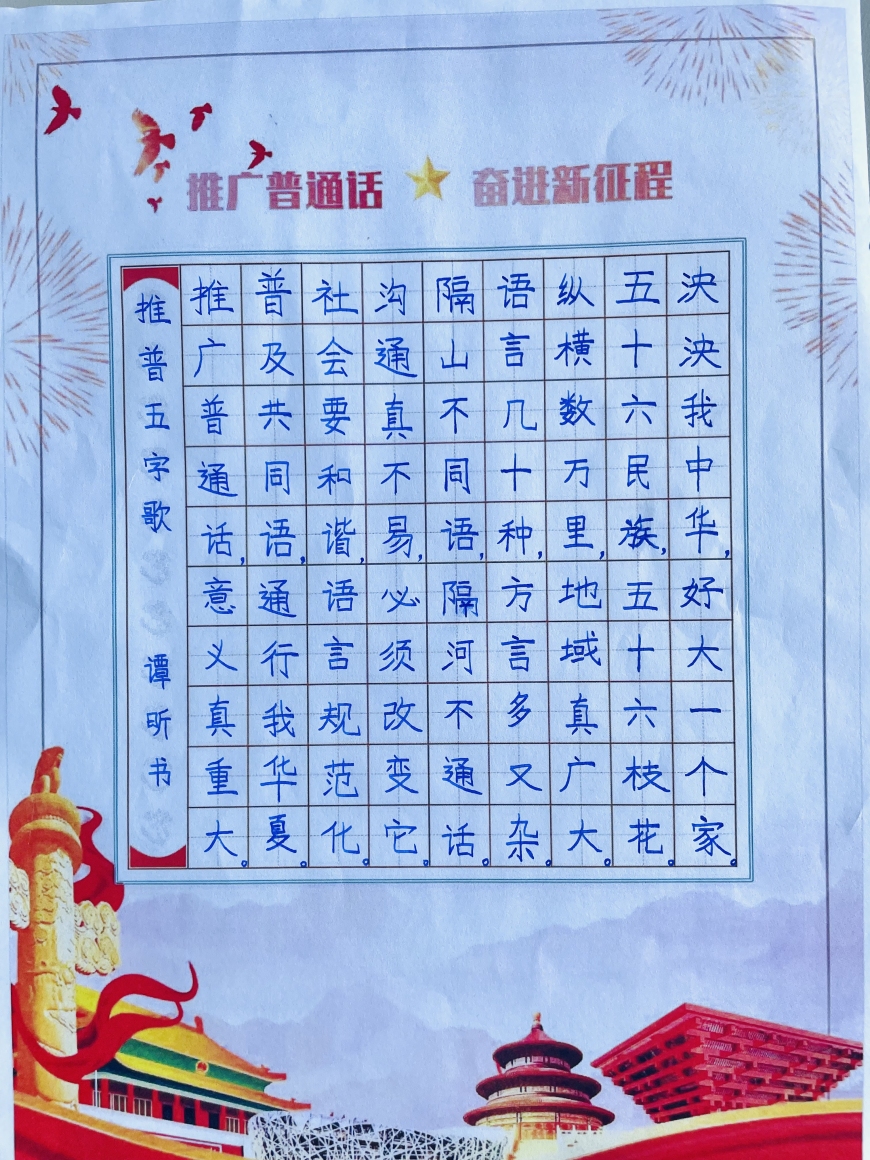 推广普通话 奋进新征程
泱泱我中华,好大一个家。
五十六民族,五十六枝花。
纵横数万里,地域真广大。
语言几十种,方言多又杂。
隔山不同语,隔河不通话。
沟通真不易,必须改变它。
社会要和谐,语言规范化。
普及共同语,通行我华夏。
推广普通话,意义真重大。
推普五字歌 谭昕书